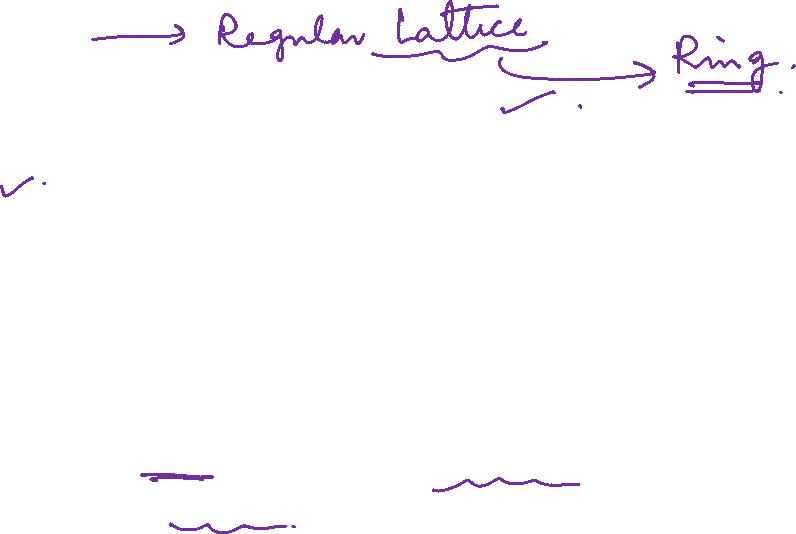 → Regular Lattice
→ Ring.